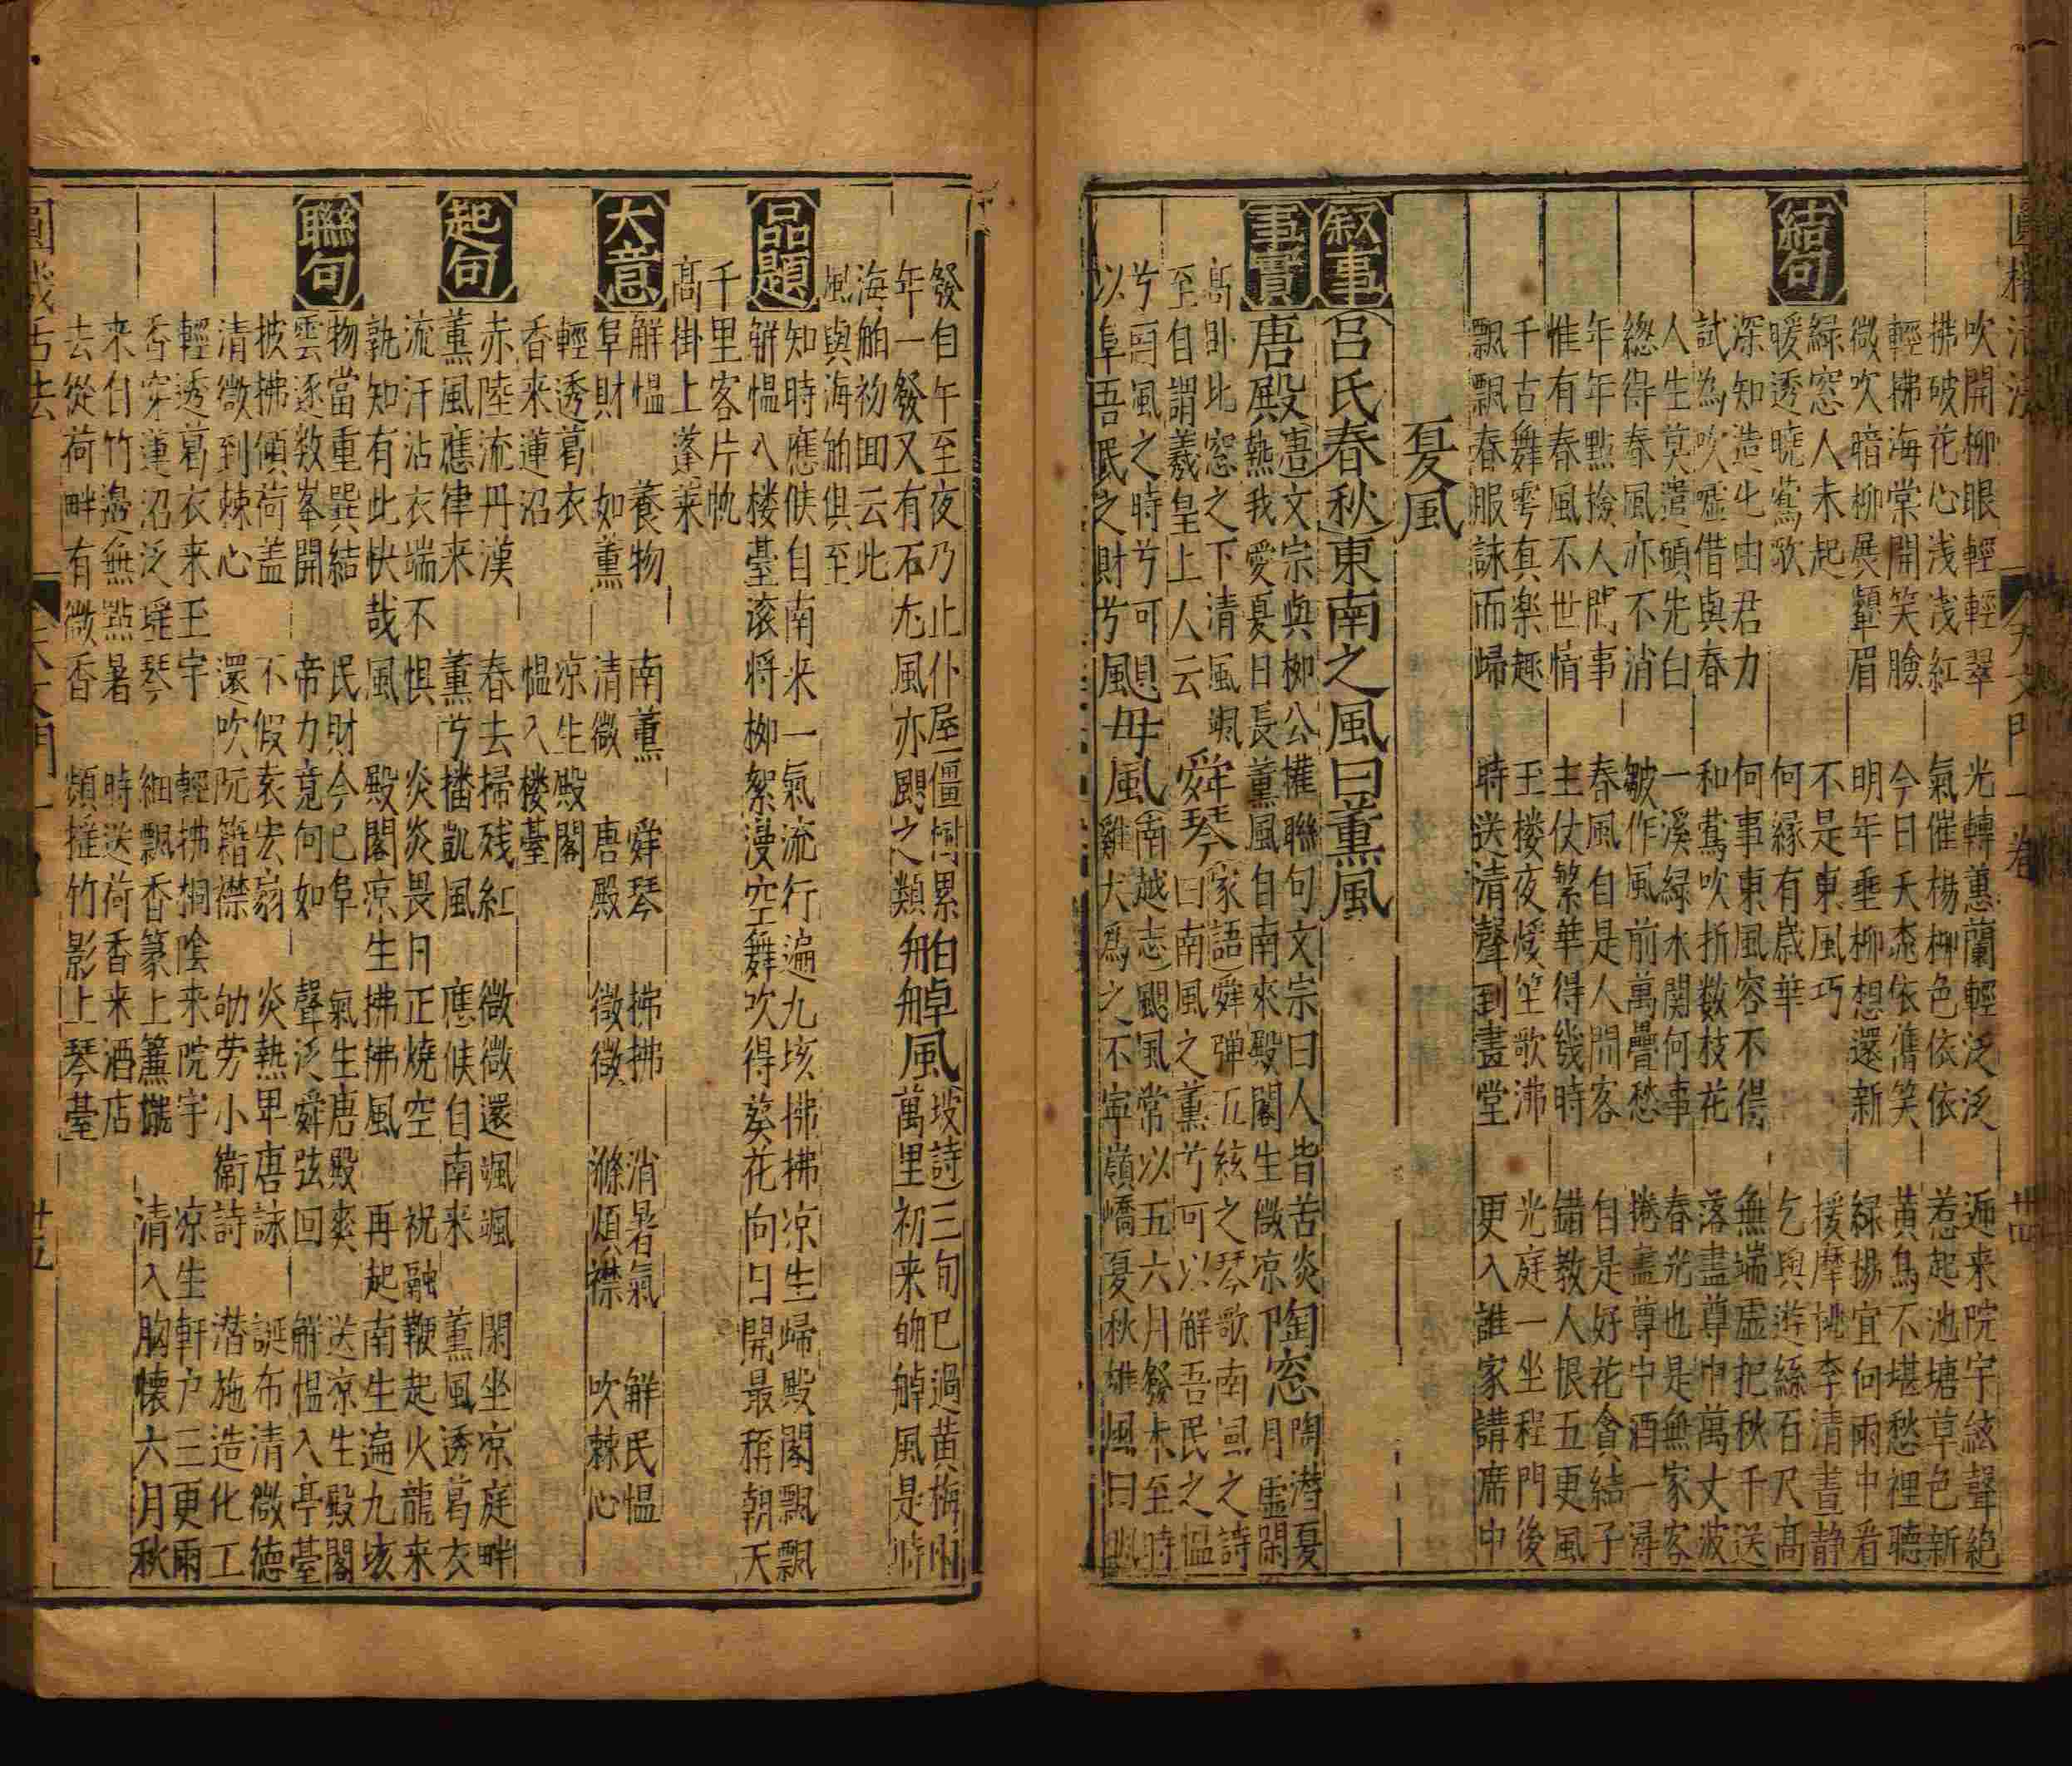 圓機活法 天文門一卷 廿四
吹開柳眼輕輕翠 光轉蕙蘭輕泛泛 邇来院宇絃聲絶
拂破花心浅浅紅 氣催楊柳色依依 惹起池塘草色新
輕拂海棠開笑臉 今日夭桃依舊笑 黄鳥不堪愁裡聽
微吹暗柳展顰眉 明年垂柳想還新 緑楊宜向雨中看
結句
緑窓人未起 不是東風巧 援摩桃李清晝静
暖透曉鶯歌 何縁有歳華 乞與遊絲百尺高
深知造化由君力 何事東風容不得 無端虚把秋千送
試為吹噓借與春 和鶯吹折数枝花 落盡尊中萬丈波
人生莫遣頭先白 一溪緑水関何事 春光也是無家客
總得春風亦不消 皺作風前萬疊愁 捲盡尊中酒一潯
年年點撿人間事 春風自是人間客 自是好花貪結子
惟有春風不世情 主仗繁華得幾時 錯教人恨五更風
千古舞雩真楽趣 玉楼夜煖笙歌沸 光庭一坐程門後
飄飄春服詠而歸 時送清聲到畫堂 更入誰家講席中
夏風
叙事 (呂氏春秋)東南之風曰薫風
事實 唐殿 唐文宗與柳公權聯句文宗曰人皆苦炎
熱我愛夏日長薫風自南來殿閣生微凉 陶窓 陶潜夏
月虚閑
高卧北窓之下清風颯
至自謂羲皇上人云 舜琴 家語)舜弹五絃之琴歌南風之詩
曰南風之薫兮可以解吾民之愠
兮南風之時兮可
以阜吾民之財兮 颶母風 南越志)颶風常以五六月發未至時
雞犬為之不寧嶺嶠夏秋雄風曰颶
發自午至夜乃止仆屋僵樹累
年一發又有石尤風亦颶之類 舶䑲風 坡詩)三旬已過黄梅雨
萬里初来舶䑲風是時
海舶初囬云此
風與海舶俱至
品題
知時應候自南来 一氣流行遍九垓 拂拂凉生歸殿閣 飄飄
解愠入楼臺 滚将柳絮漫空舞 吹得葵花向日開 最稱朝天
千里客 片帆
高掛上蓬莱
大意
解愠 養物 南薫 舜琴 拂拂 消暑氣 解民愠
阜財 如薫 清微 唐殿 微微 滌煩襟 吹棘心
輕透葛衣 凉生殿閣
香来蓮沼 愠入楼臺
起句
赤陸流丹漢 春去掃残紅 微微還颯颯 閑坐凉庭畔
薫風應律来 薫兮播凱風 應候自南来 薫風透葛衣
流汗沾衣端不惧 炎炎畏日正燒空 祝融鞭起火龍来
孰知有此快哉風 殿閣凉生拂拂風 再起南生遍九垓
聯句
物當重巽結 民財今已阜 氣生唐殿爽 送凉生殿閣
雲逐数峯開 帝力竟何如 聲泛舜弦回 解愠入亭臺
披拂傾荷盖 不假袁宏扇 炎熱畢唐詠 誕布清微德
清微到棘心 還吹阮籍襟 劬劳小衞詩 潜施造化工
輕透葛衣来玉宇 輕拂桐陰来院宇 凉生軒户三更雨
香穿蓮沼泛瑶琴 細飄香篆上簾櫳 清入胸懐六月秋
来自竹邉無㸃暑 時送荷香来酒店
去從荷畔有微香 頻摧竹影上琴臺
圓機活法 天文門一卷 廿五